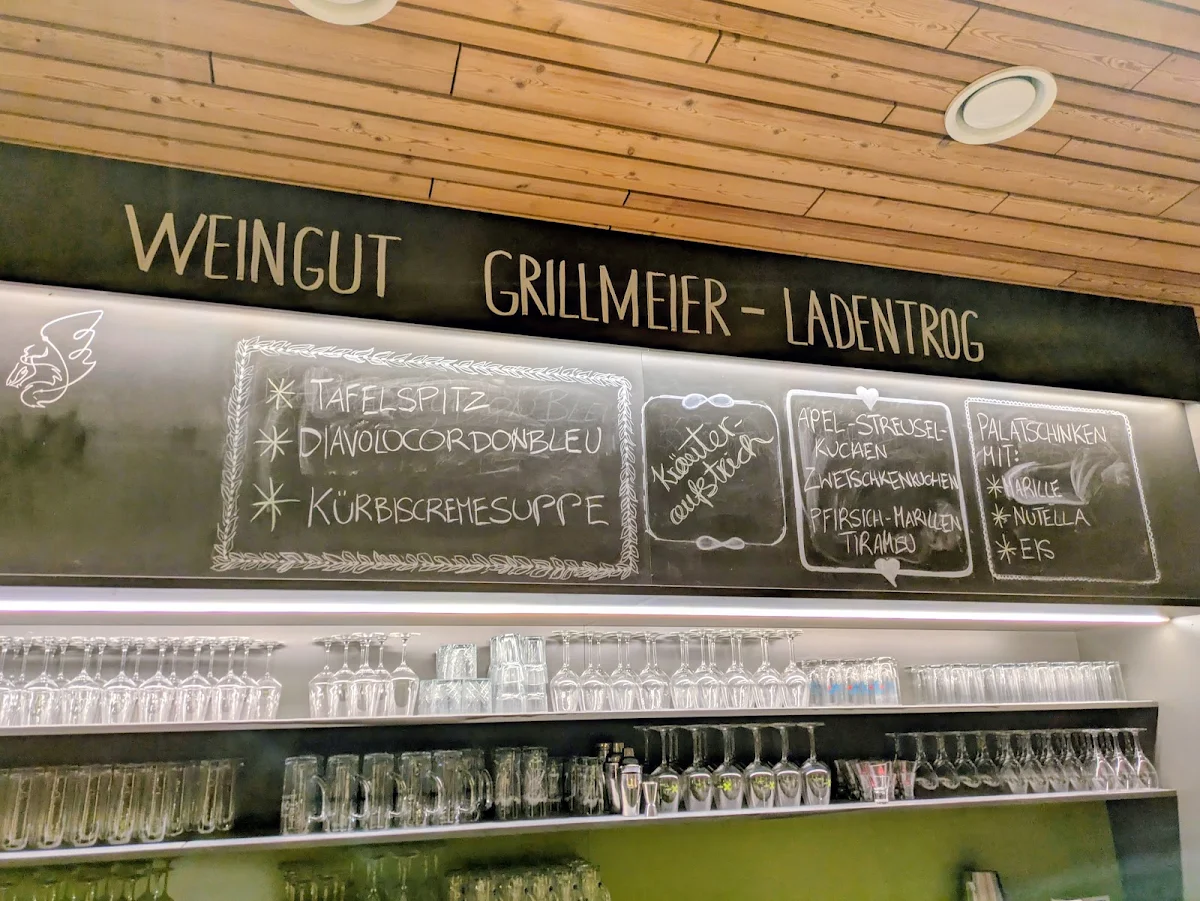 WEINGUT GRILLMEIER - LADENTROG
* TAFELSPITZ
* DIAVOLOCORDONBLEU
* KÜRBISCREMESUPPE
Kräuter-
aufstrich
APEL-STREUSEL-
KUCHEN
ZWETSCHKENKUCHEN
PFIRSICH-MARILLEN
TIRAMISU
PALATSCHINKEN
MIT:
* MARILLE
* NUTELLA
* EIS